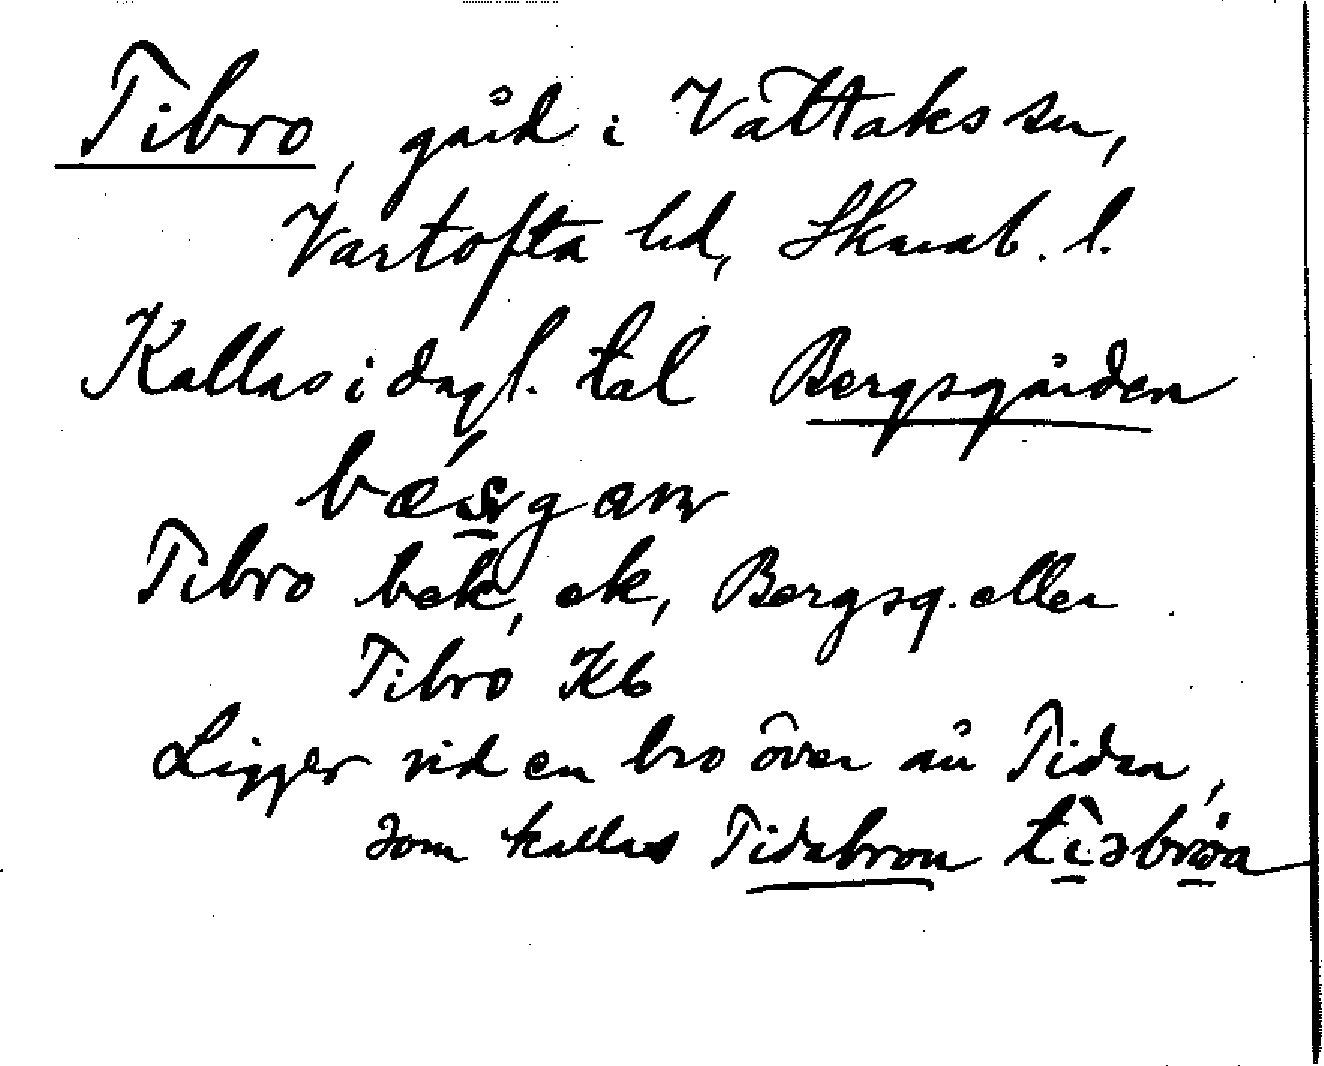 Tibro, gård i Vättaks sn,
Vartofta hd, Skarab. l.
Kallas i dagl. tal Bergsgården
Tibro bek, ek, Bergsg. eller
Tibro Kb
Ligger vid en bro över ån Tidan,
som kallas Tidabron